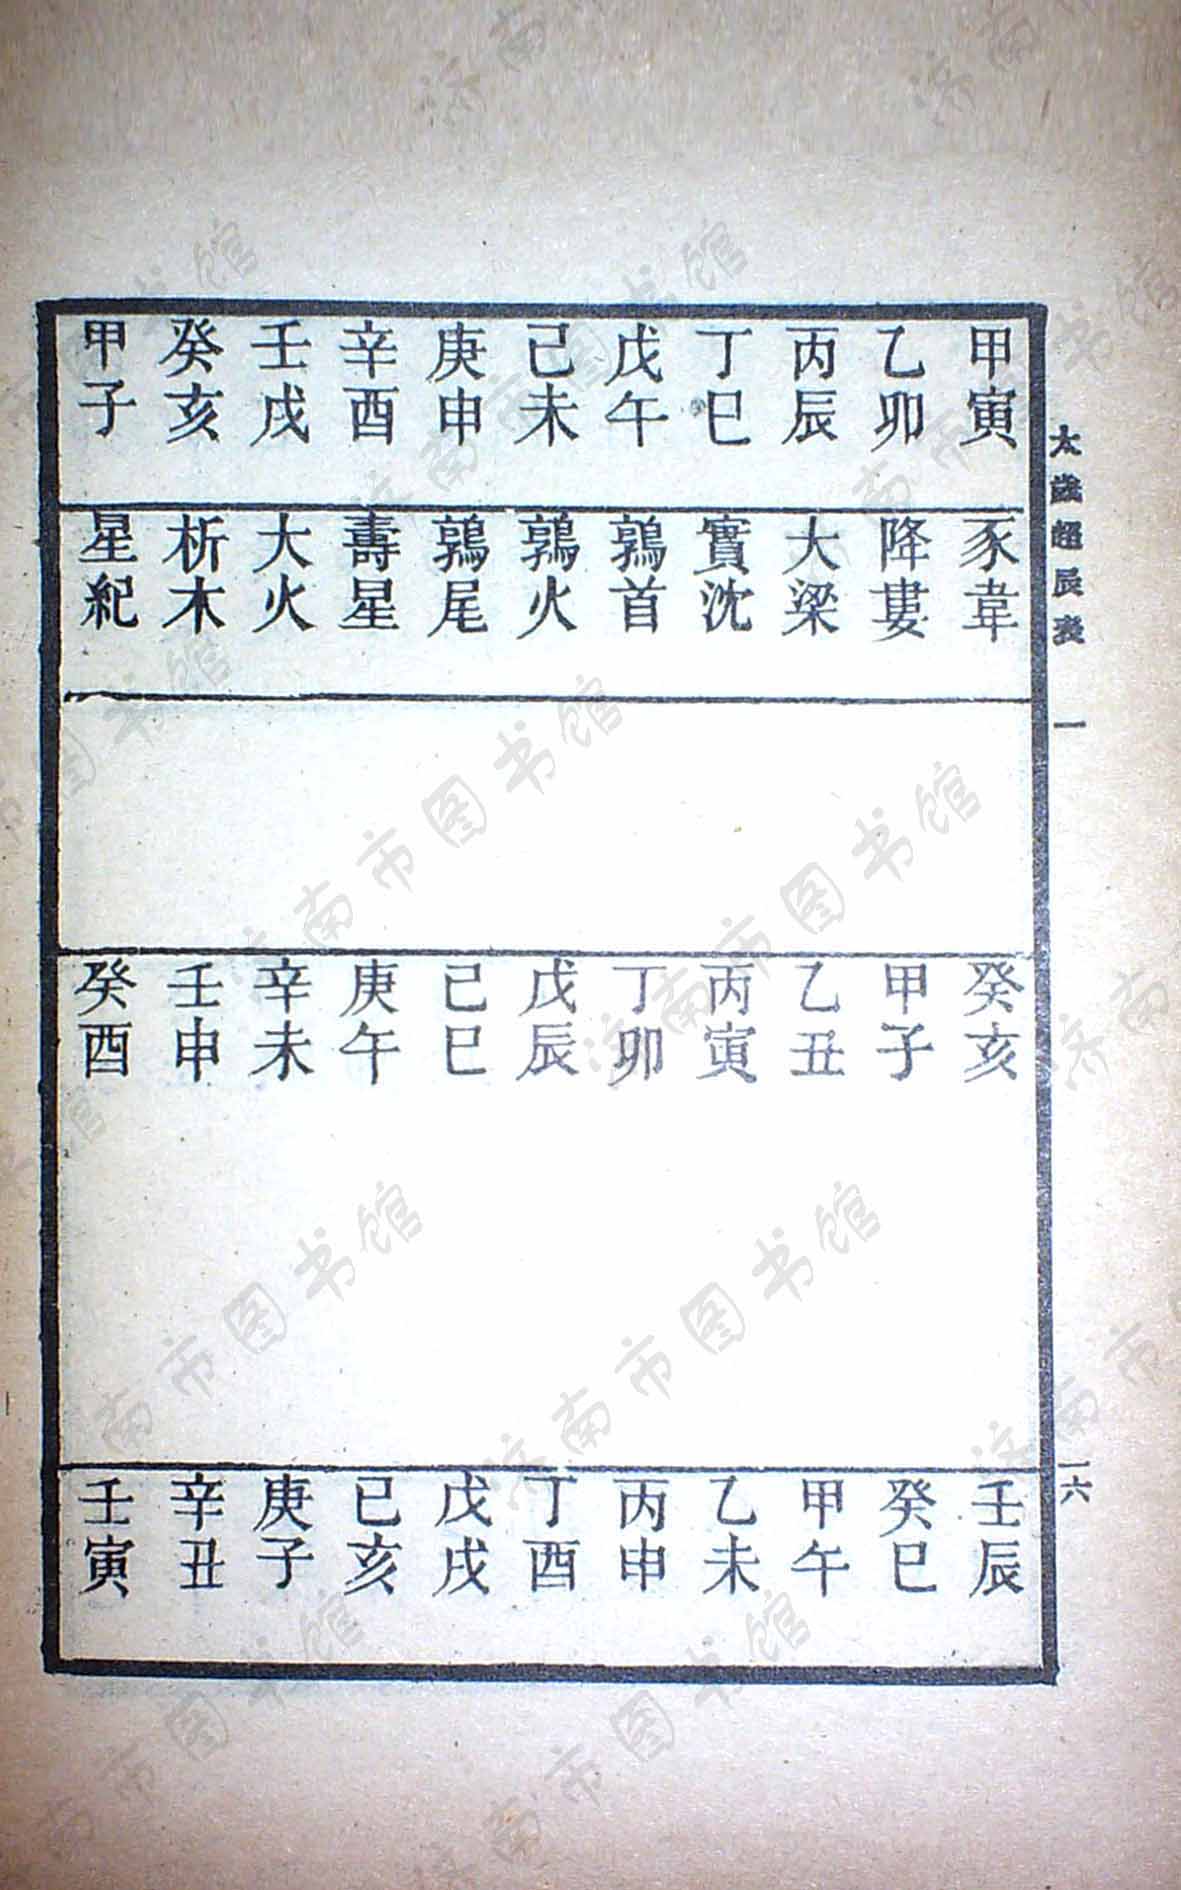 太歲超辰表 一 一六
甲寅 豕韋 癸亥 壬辰
乙卯 降婁 甲子 癸巳
丙辰 大梁 乙丑 甲午
丁巳 實沈 丙寅 乙未
戊午 鶉首 丁卯 丙申
己未 鶉火 戊辰 丁酉
庚申 鶉尾 己巳 戊戌
辛酉 壽星 庚午 己亥
壬戌 大火 辛未 庚子
癸亥 析木 壬申 辛丑
甲子 星紀 癸酉 壬寅
济南市图书馆